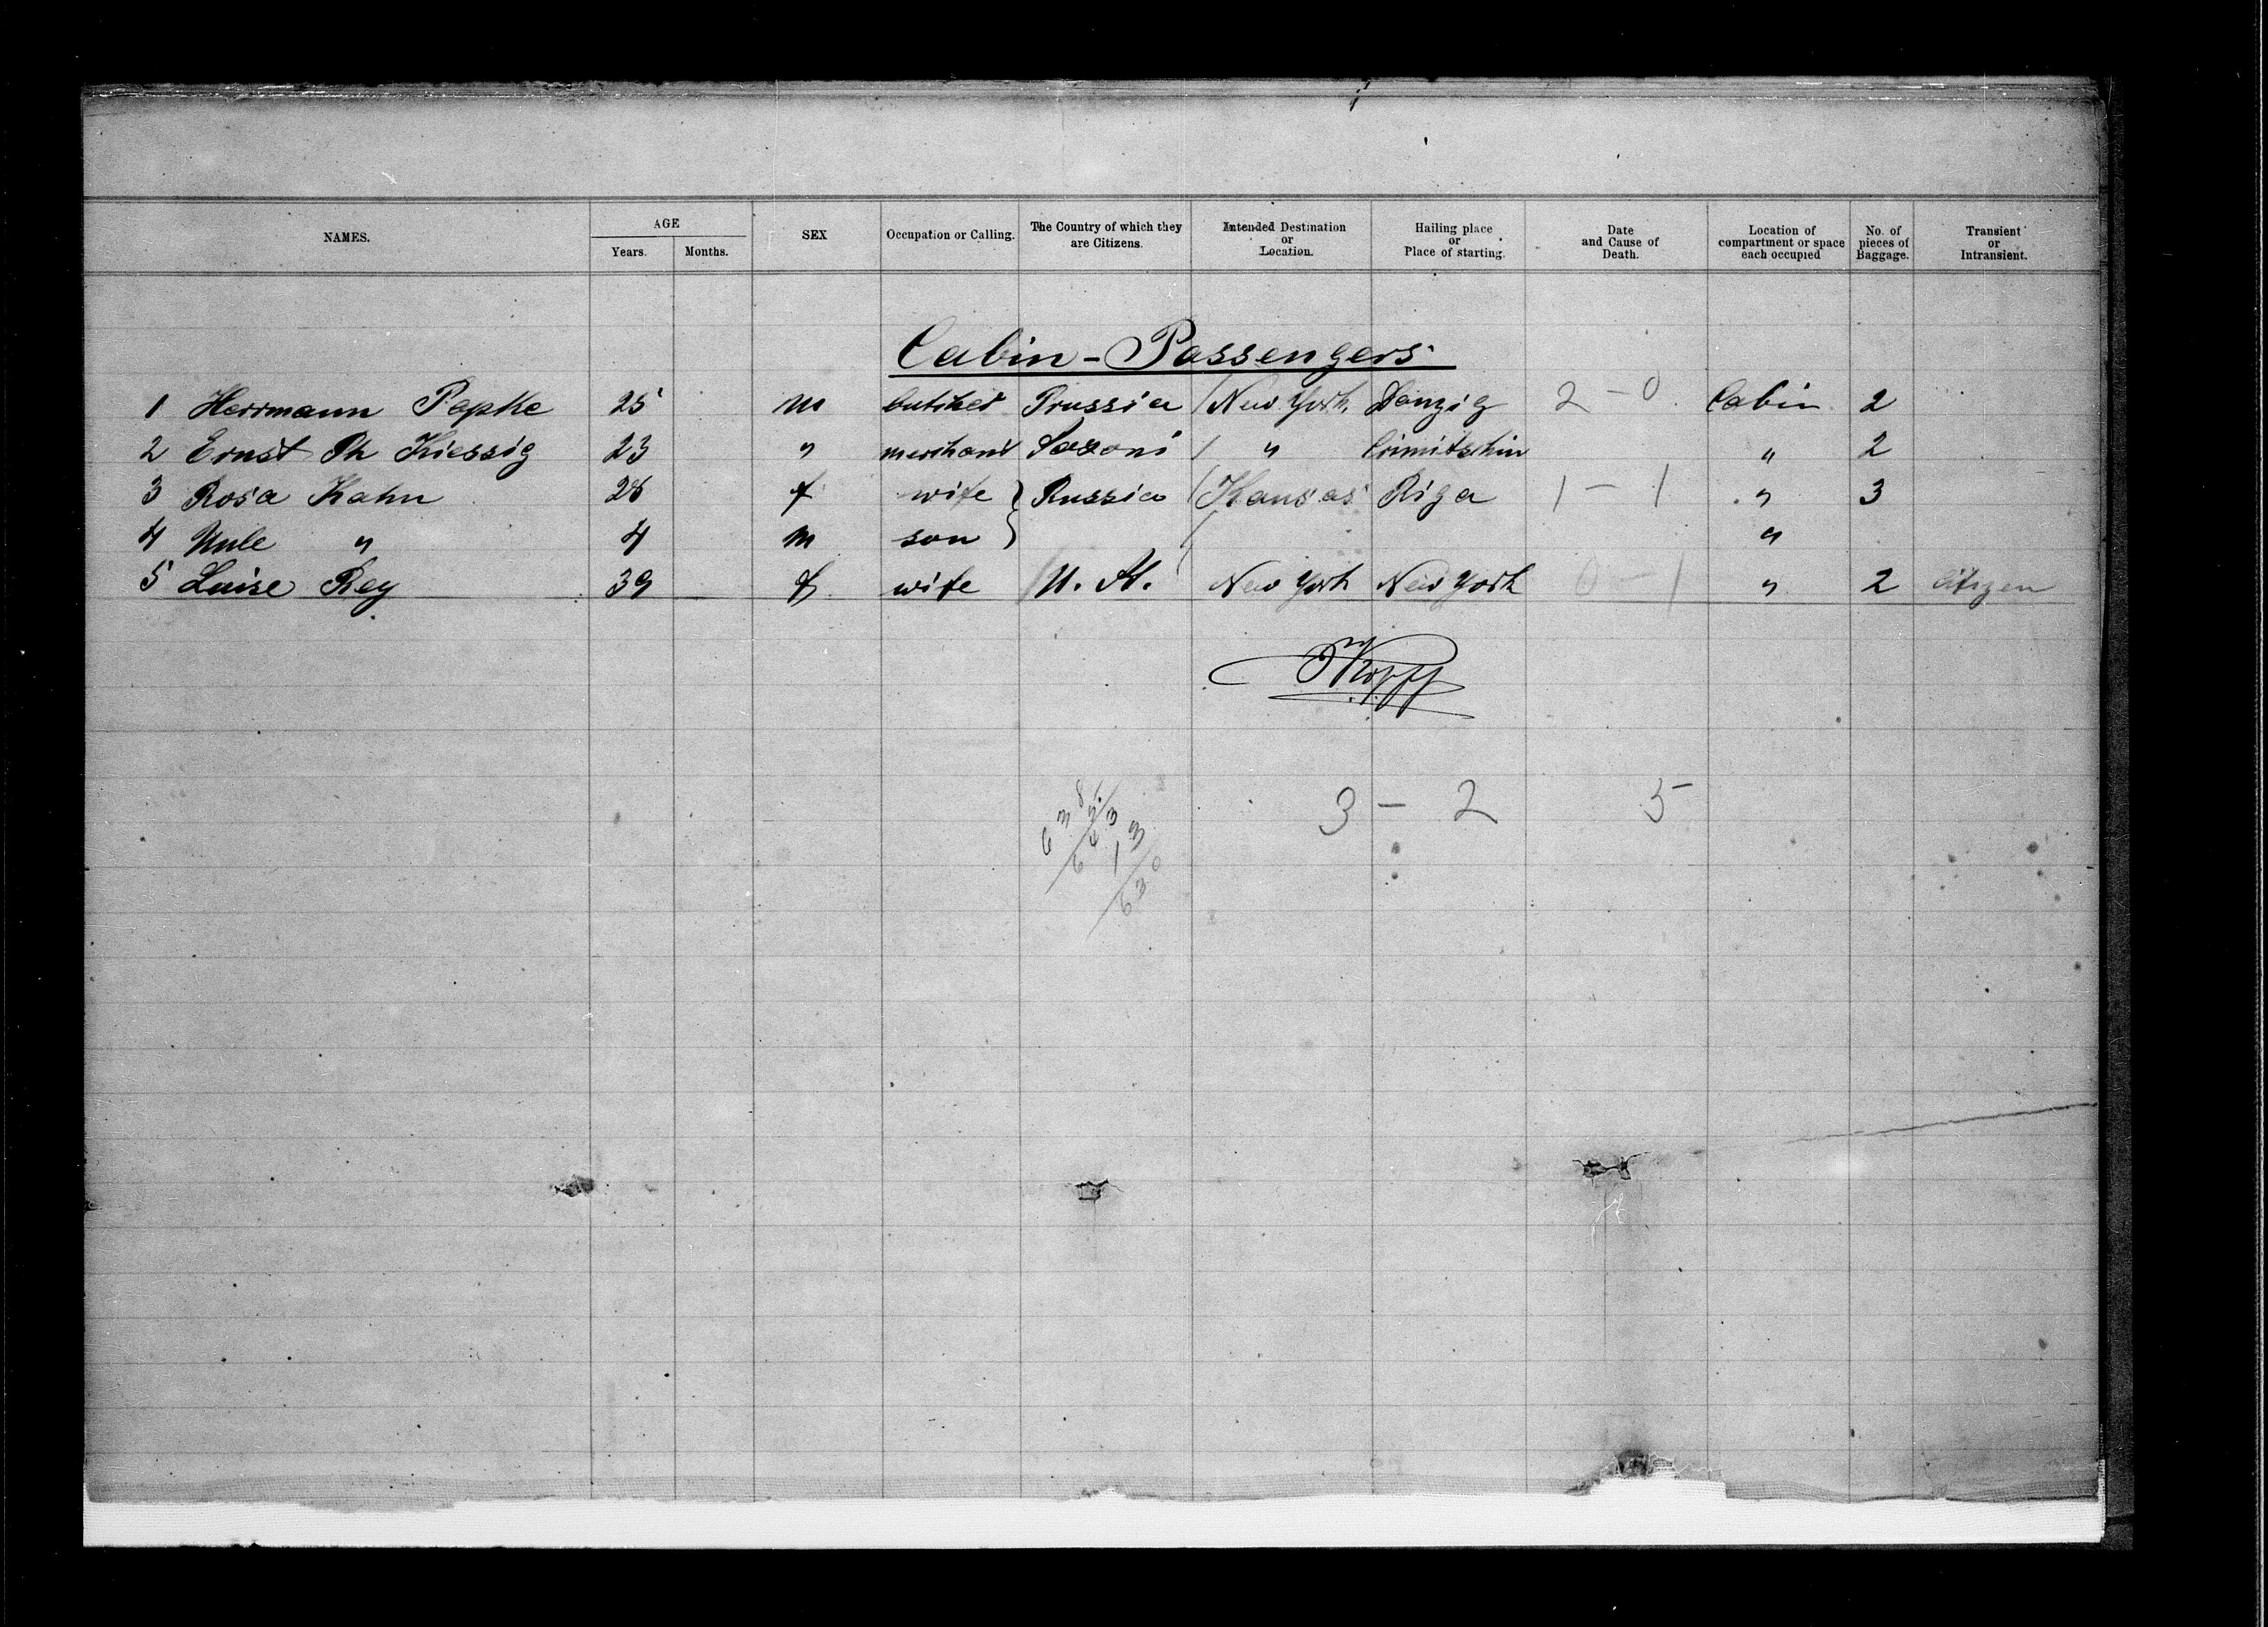 NAMES. AGE Years. Months. SEX Occupation or Calling. The Country of which they are Citizens. Intended Destination or Location. Hailing place or Place of starting. Date and Cause of Death. Location of compartment or space each occupied No. of pieces of Baggage. Transient or Intransient.
Cabin-Passengers
1 Herrmann Papke 25 m butcher Prussia New York Danzig 2 - 0 Cabin 2
2 Ernst Th Kiessig 23 " merchant Saxoni " Crimitschin " 2
3 Rosa Kahn 28 f wife Russia Kansas Riga 1 - 1 " 3
4 " 4 m son "
5 Luise Rey 39 f wife U. St. New York New York 0 - 1 " 2 Citizen
3 - 2 5
630